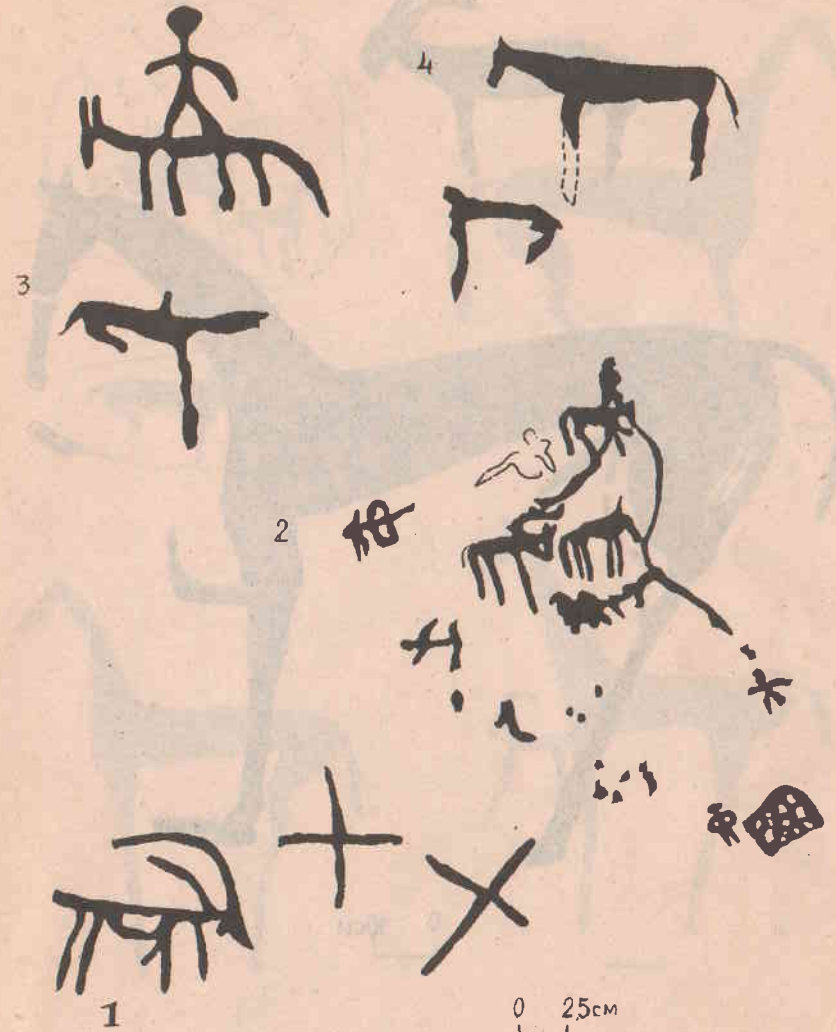 4
3
2
1
0 2,5см